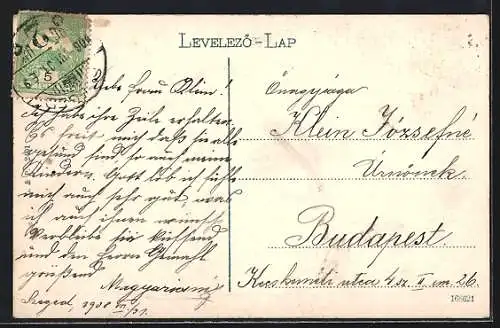 LEVELEZŐ-LAP
Liebe Frau Klein!
Ich habe ihre Zeile erhalten.
Es freut mich daß sie alle
gesund sind so auch meine
Kindern. Gott lob ich fühle
mich auch sehr gut, was
ich auch ihnen wünsch
Verbleibe Sie küssend
und den Herrn Gemahl
grüßend
Szeged, 1908
Őnagysága
Klein Józsefné
Úrnőnek
Budapest.
Kecskeméti utca 4 sz. II em 26